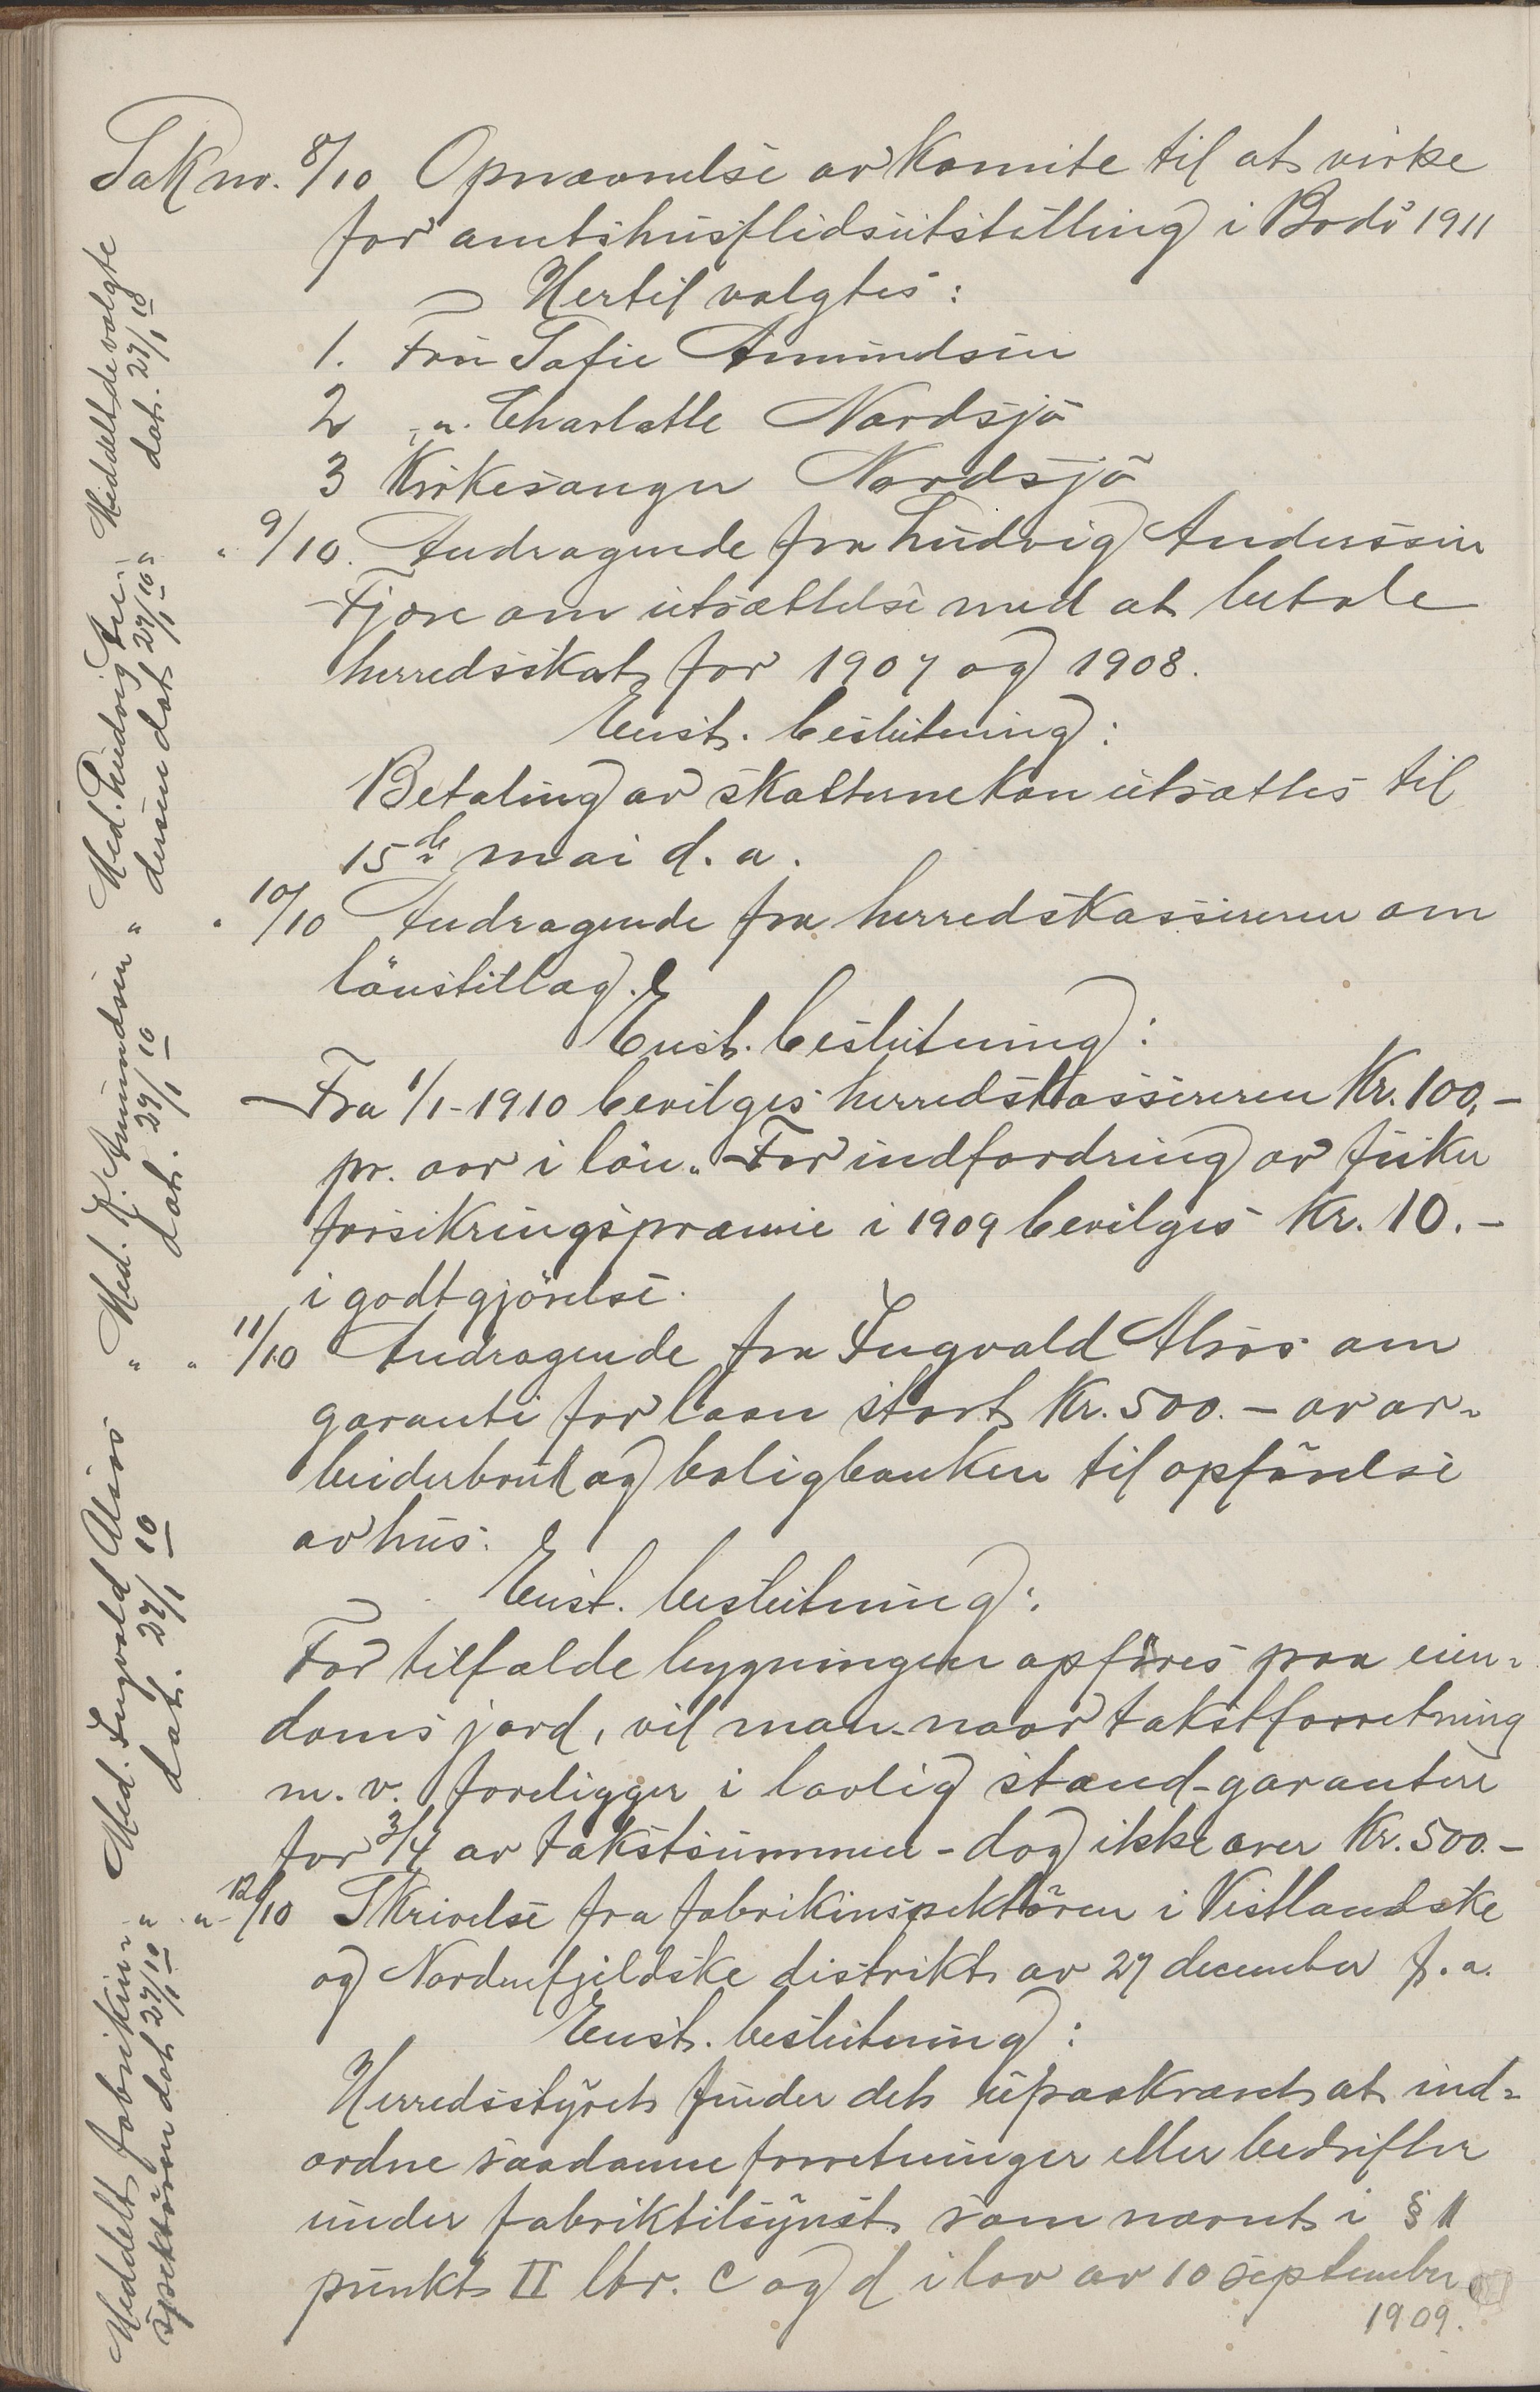 Sak nr. 8/10 Opnævnelse av komite til at virke
for amtshusflidsutstilling i Bodö 1911
Hertil valgtes:
1. Fru Sofie Amundsen
2 " Charlotte Nordsjö
3 Kirkesanger Nordsjö
" 9/10. Andragende fra Ludvig Anderssen
Fjære om utsættelse med at betale
herredsskat for 1907 og 1908.
Enst. beslutning:
Betaling av skatterne kan utsættes til
15de mai d. a.
" 10/10 Andragende fra herredskassereren om
lönstillæg.
Enst. beslutning:
Fra 1/1-1910 bevilges herredskassereren Kr. 100,-
pr. aar i lön. For indfordring av fisker
forsikringspræmie i 1909 bevilges Kr. 10.-
i godtgjörelse.
" 11/10 Andragende fra Ingvald Alsos om
garanti for laan stort Kr. 500.- av ar-
beiderbruk og boligbanken til opförelse
av hus.
Enst. beslutning:
For tilfælde bygningen opföres paa eien-
doms jord, vil man-naar takstforretning
m. v. foreligger i lovlig stand-garantere
for 3/4 av takstsummen - dog ikke over Kr. 500.-
" 12/10 Skrivelse fra fabrikinspektören i Vestlandske
og Nordenfjeldske distrikt av 27 december f. a.
Enst. beslutning:
Herredsstyret finder det upaakrævet at ind-
ordne saadanne forretninger eller bedrifter
under fabriktilsynet som nævnt i § 1
punkt II ltr. c og d i lov av 10 september
1909.
Meddelt de valgte
dat. 27/1 10
Med. Ludvig An-
derssen dat 27/1 10
" Med. J. Amundsen "
dat. 27/1 10
" Med. Ingvald Alsos
dat. 27/1 10
Meddelt fabrikin- "
spektören dat 27/1 10